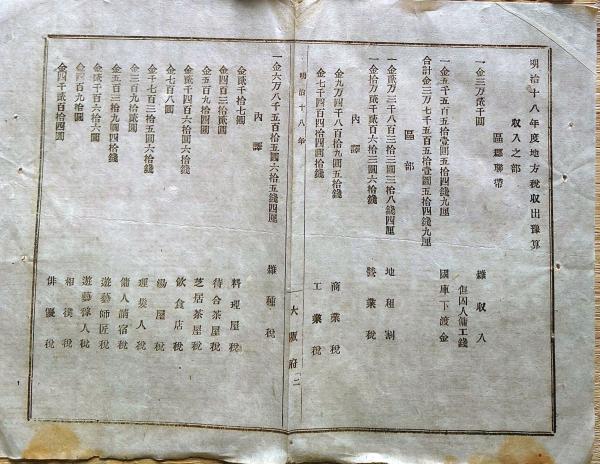 明治十八年度地方税収出豫算
収入之部
區郡聯帶
一金三万貳千圓 雜収入
但囚人傭工錢
一金五千五百五拾壹圓五拾四錢九厘 國庫下渡金
合計金三万七千五百五拾壹圓五拾四錢九厘
區部
一金貳万三千八百三拾三圓三拾八錢四厘 地租割
一金拾万貳千貳百六拾三圓六拾錢 營業税
内譯
金九万四千八百拾九圓五拾錢 商業税
金七千四百四拾四圓拾錢 工業税
明治十八年
大阪府
二
一金六万八千五百拾五圓六拾五錢四厘 雜種税
内譯
金貳千拾七圓 料理屋税
金四百三拾貳圓 待合茶屋税
金五百九拾四圓 芝居茶屋税
金貳千四百六拾四圓六拾錢 飲食店税
金七百八圓 湯屋税
金千七百三拾五圓六拾錢 理髪人税
金三百九拾貳圓 傭人請宿税
金五百三拾九圓四拾錢 遊藝師匠税
金貳千六百六拾圓 遊藝稼人税
金四百九拾圓 相撲税
金四千貳百拾四圓 俳優税